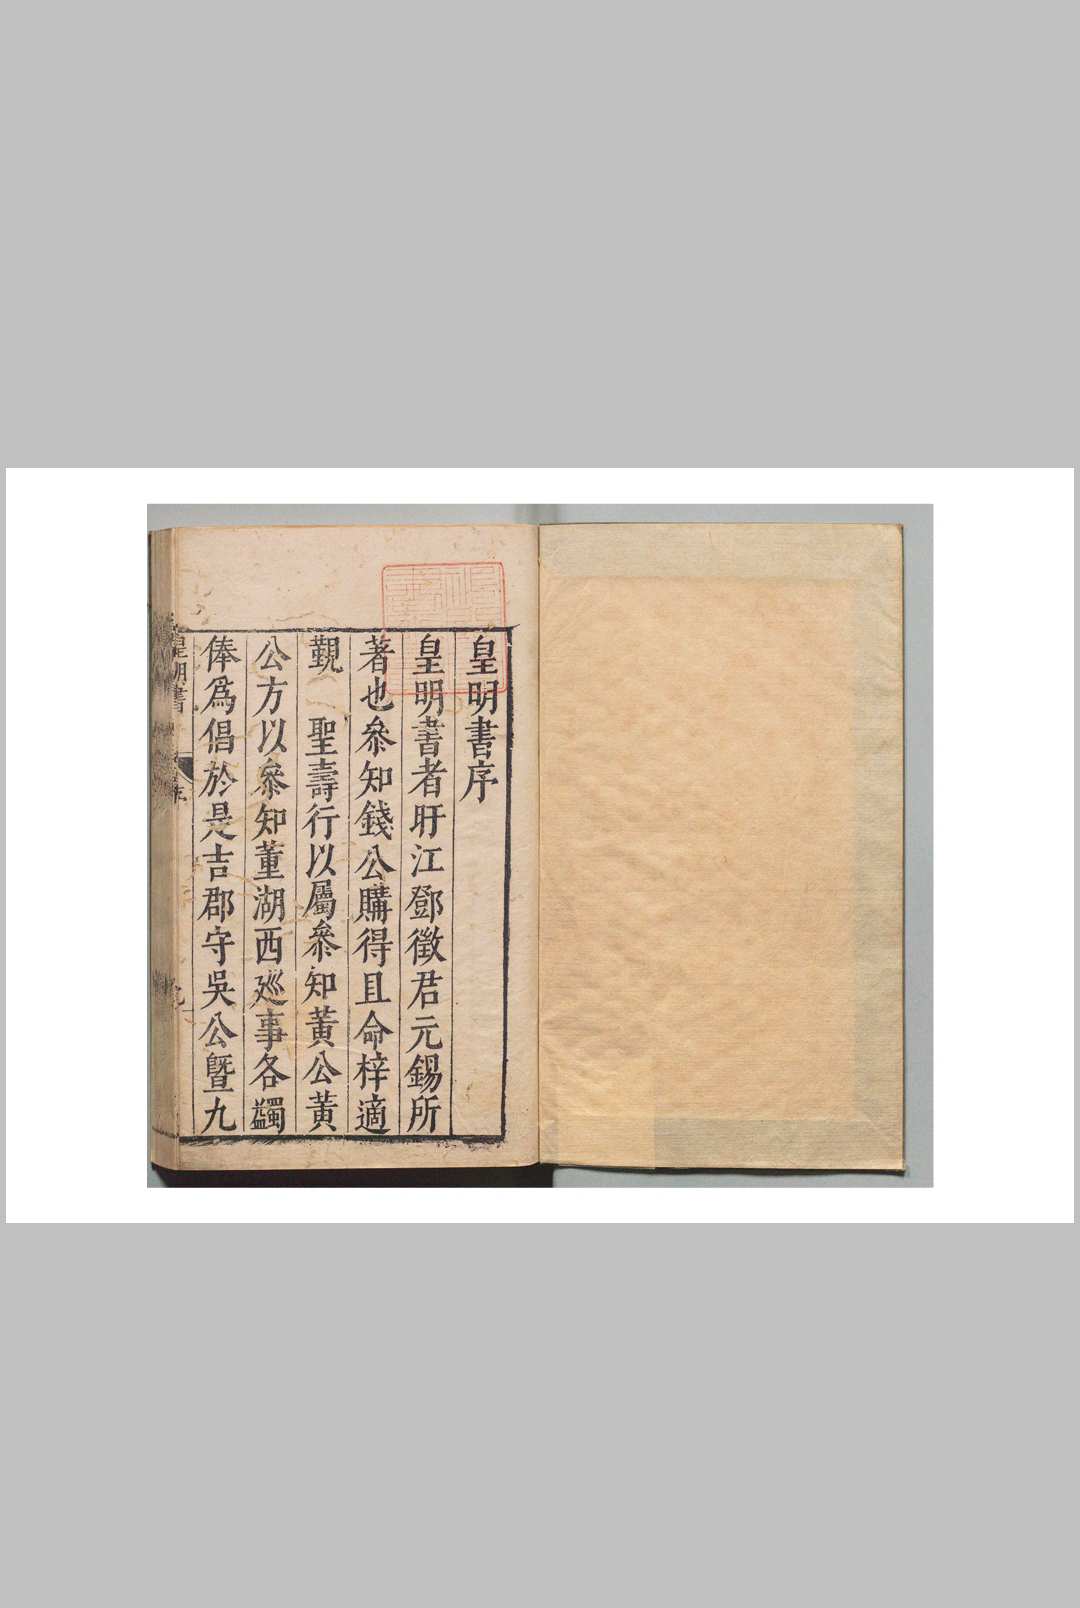 皇明書序
皇明書者盱江鄧徵君元錫所
著也叅知錢公購得且命梓適
覲　聖壽行以屬叅知黃公黃
公方以叅知董湖西廵事各蠲
俸爲倡於是吉郡守吳公曁九
皇明書